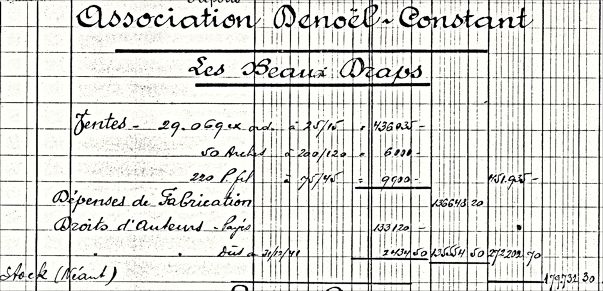 Association Denoël-Constant
Les Beaux Draps
Ventes - 29.069 ex. ord. à 25/15 = 436035 -
50 Arches à 200/120 = 6000 -
220 P. fil à 75/45 = 9900 - 451.935 -
Dépenses de Fabrication 136648 20
Droits d'Auteurs - Payés 133120 -
" " Dûs à 31/12/41 2434 50 135554 50 272202 70
Stock (Néant) 179732 30